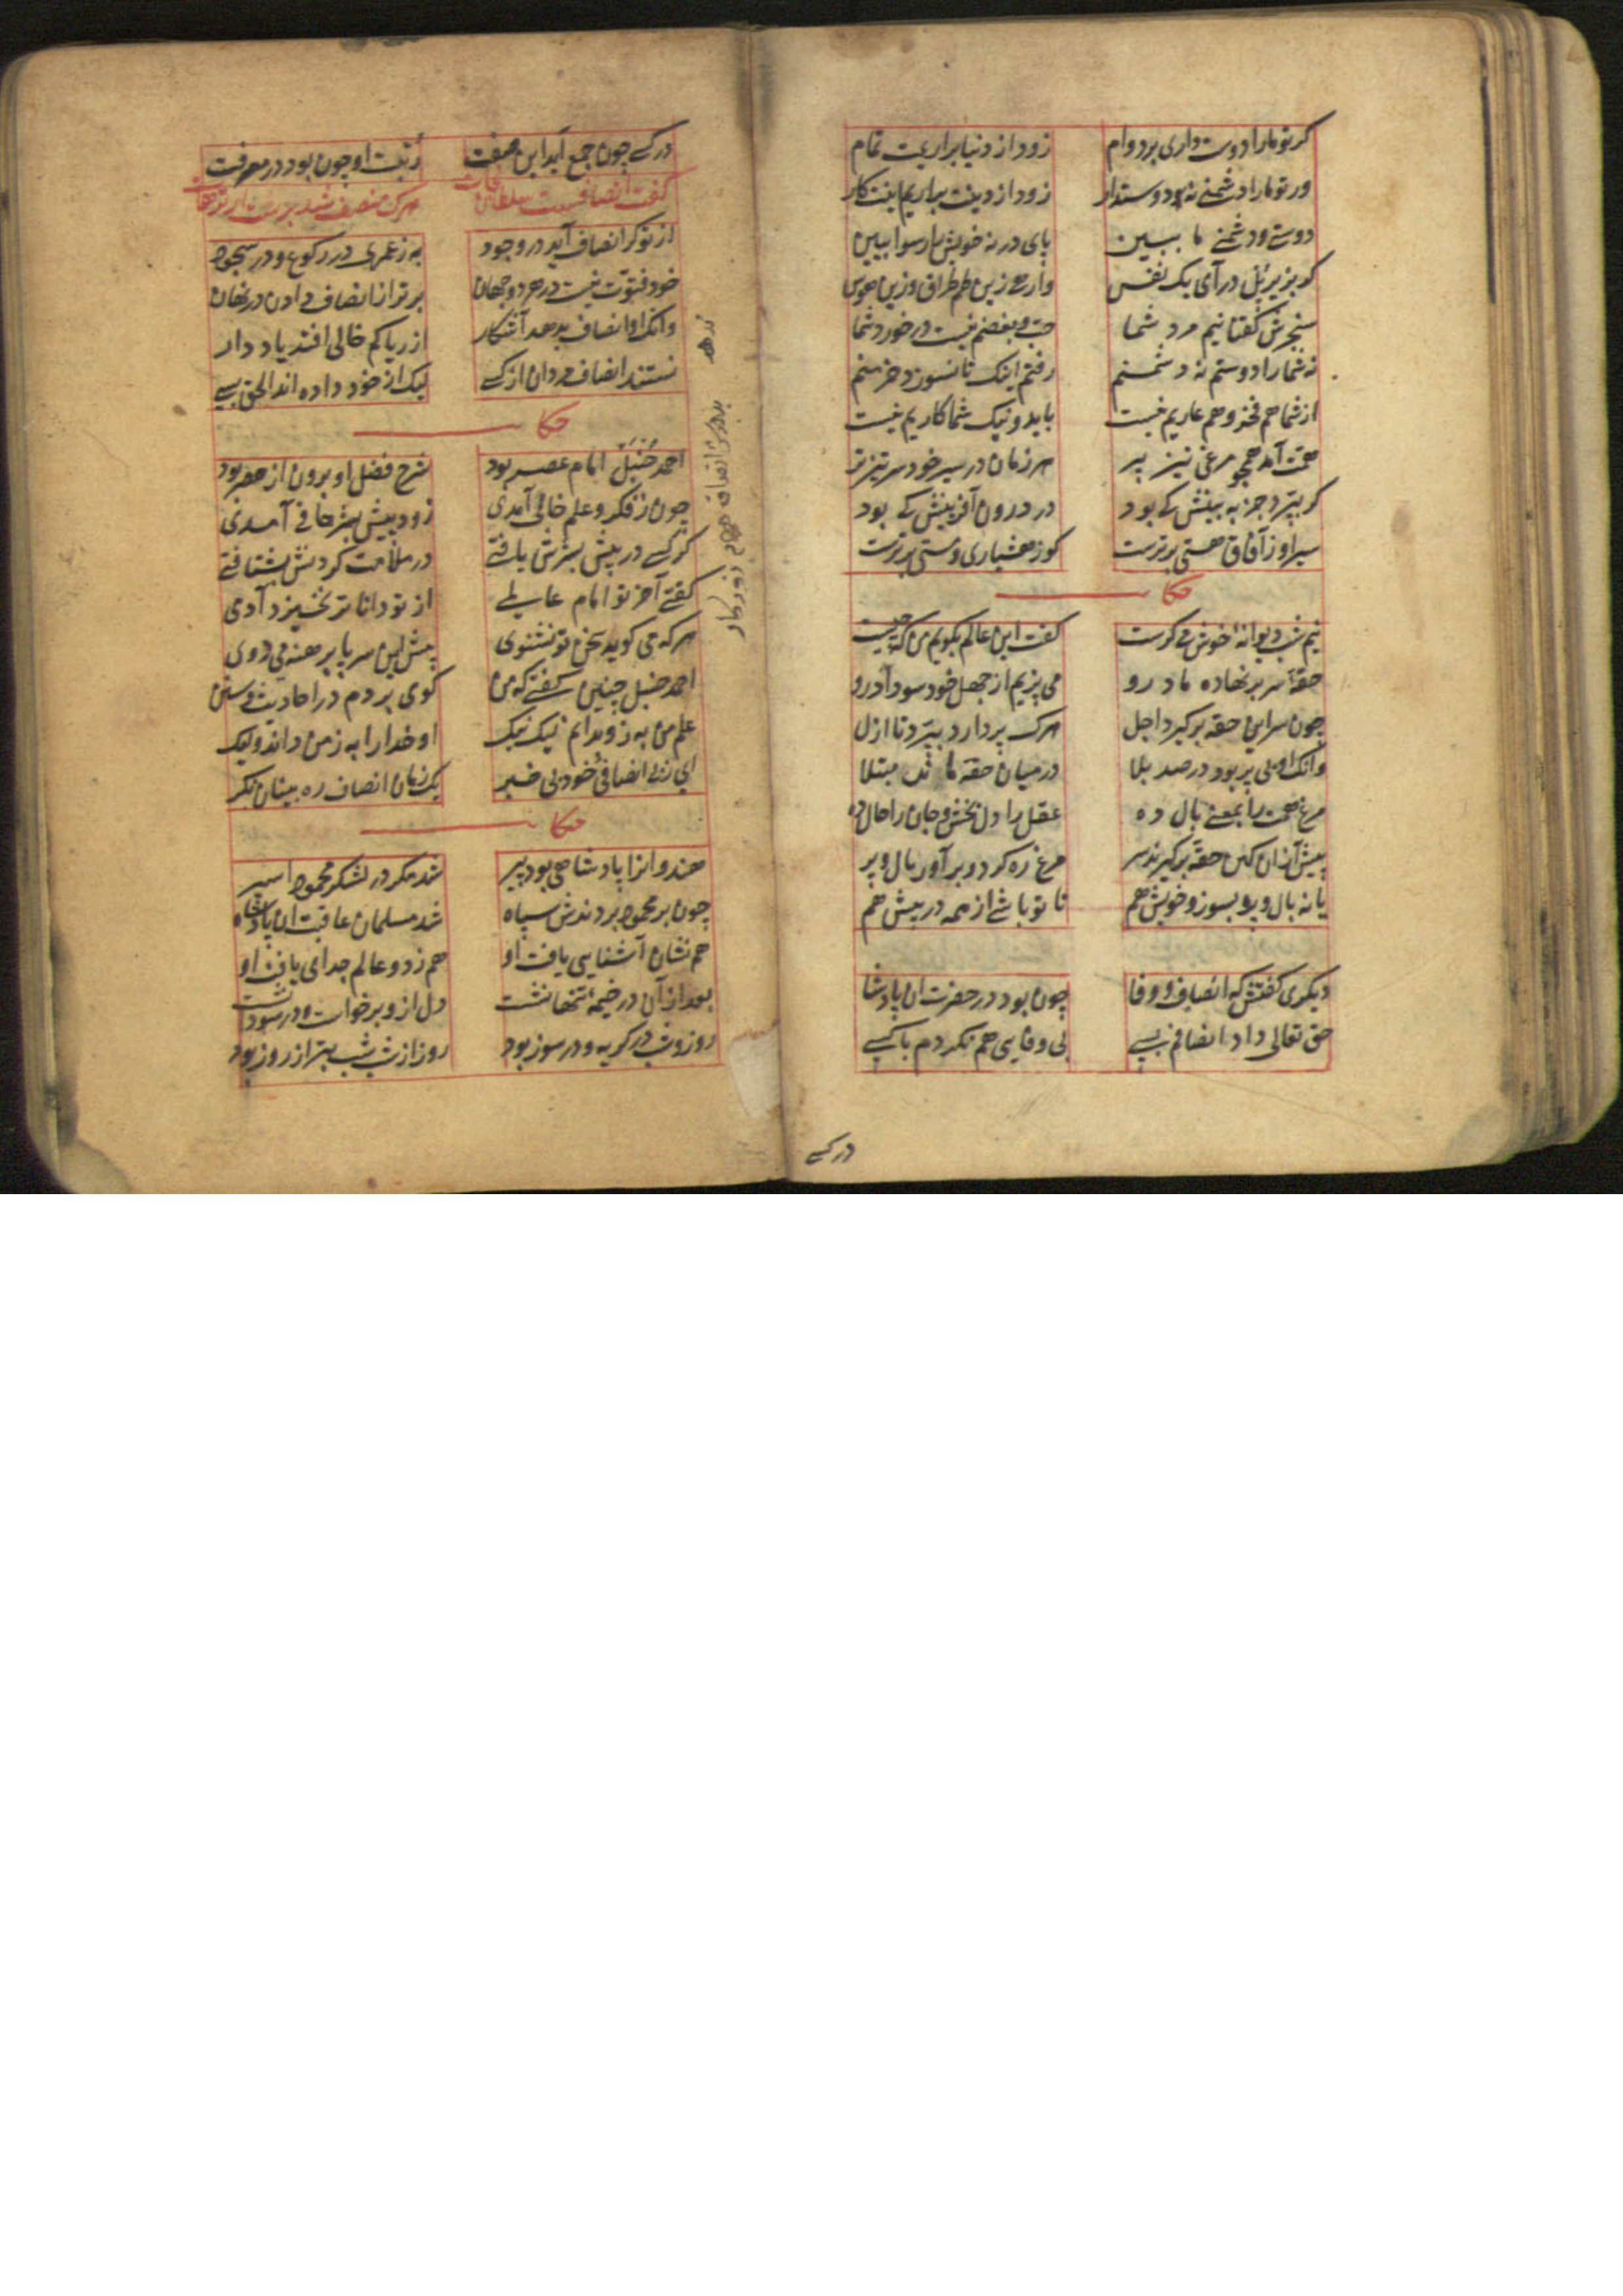 کر تو مارا دوست داری بر دوام زود از دنیا براریمت تمام
ور تو مارا دشمنے نه دوستدار زود از دینت براریم اینت کار
دوستے و دشمنے ما ببین پای در نه خویش را رسوا ببین
کر بزیر پل در آی یک نفس وارهی زین طم طراق وزین هوس
سنجرش کفتا نیم مرد شما حب و بغضم نیست در خورد شما
نه شما را دوستم نه دشمنم رفتم اینک تا نسوزد خرمنم
از شما هم فخر و هم عاریم نیست با بد و نیک شما کاریم نیست
همت آمد همچو مرغی تیز پر هر زمان در سیر خود سر تیز تر
کر بپرد جز به بینش کے بود در درون آفرینش کے بود
سیر او ز آفاق هستی برترست کو ز هشیاری و مستی برترست
حکا
نیم شب دیوانهٔ خوش می کریست کفت این عالم بکویم من که چیست
حقهٔ سر بر نهاده ما درو می پزیم از جهل خود سودا درو
چون سر این حقه برکیرد اجل هرکه پر دارد بپرد تا ازل
وانکه او بی پر بود در صد بلا در میان حقه ماند مبتلا
مرغ همت را بمعنے بال ده عقل را دل بخش و جان را حال ده
پیش از آن کین حقه برکیرند سر مرغ ره کرد و بر آور بال و پر
یا نه بال و پر بسوز و خویش هم تا تو باشے از همه در پیش هم
دیکری کفتش که انصاف و وفا چون بود در حضرت آن پادشا
حق تعالی داد انصافم بسے بی وفایی هم نکردم با کسے
در کسے
در کسے چون جمع آید این صفت رتبت او چون بود در معرفت
کفت انصافست سلطان نجات هرکه منصف شد برست از ترهات
از تو کر انصاف آید در وجود به ز عمری در رکوع و در سجود
خود فتوت نیست در هر دو جهان برتر از انصاف دادن در نهان
وانکه او انصاف بدهد آشکار از ریا کم خالی افتد یاد دار
نستدند انصاف مردان از کسے لیک از خود داده اند الحق بسے
حکا
احمد حنبل امام عصر بود شرح فضل او برون از حصر بود
چون ز فکر و علم خالی آمدی زود پیش بشر حافے آمدی
کر کسے در پیش بشرش یافتے در ملامت کردنش بشتافتے
کفتے آخر تو امام عالمے از تو داناتر نخیزد آدمی
هرکه می کوید سخن تو نشنوی پیش این سر پا برهنه می دوی
احمد حنبل چنین کفتے که من کوی بردم در احادیث و سنن
علم من به زو بدانم نیک نیک او خدا را به ز من داند ولیک
ای ز بی انصافی خود بی خبر یک زمان انصاف ره بینان نکر
حکا
هندوانرا پادشاهی بود پیر شد مکر در لشکر محمود اسیر
چون بر محمود بردندش سپاه شد مسلمان عاقبت آن پادشاه
هم نشان آشنایی یافت او هم ز دو عالم جدای یافت او
بعد از آن در خیمهٔ تنها نشست دل ازو برخواست و در سودا نشست
روز و شب در کریه و در سوز بود روز از شب شب بتر از روز بود